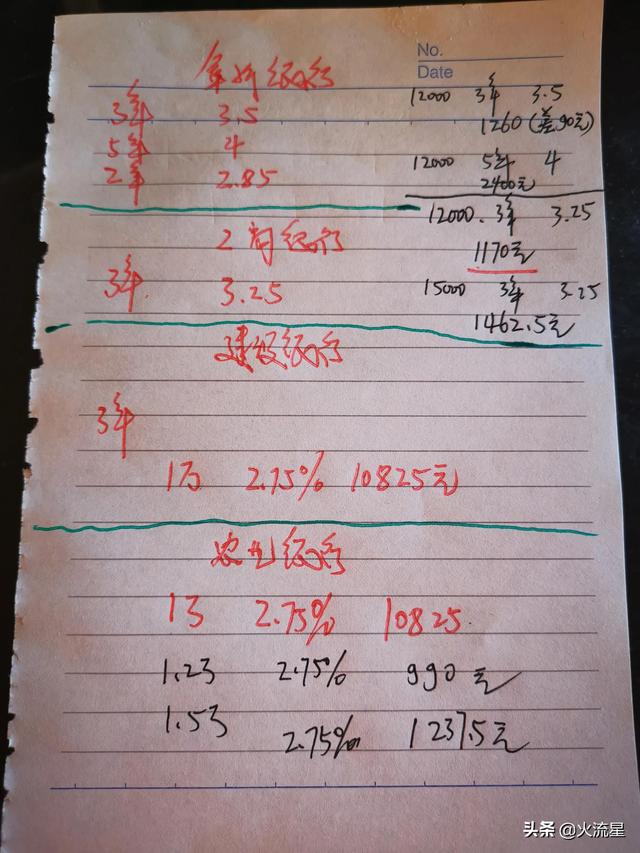 No.
Date
银行
3年 3.5
5年 4
2年 2.85
12000 3年 3.5
1260(差90元)
12000 5年 4
2400元
12000. 3年 3.25
1170元
15000 3年 3.25
1462.5元
工商银行
3年 3.25
建设银行
3年
1万 2.75% 10825元
农业银行
1万 2.75% 10825
1.2万 2.75% 990元
1.5万 2.75% 1237.5元
头条 @火流星